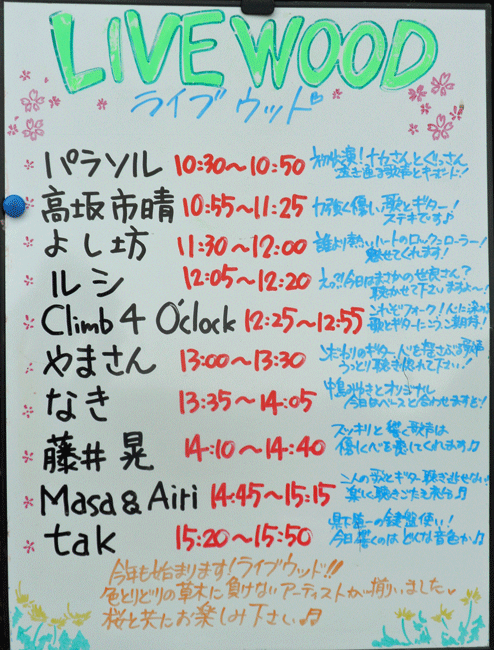 LIVE WOOD
ライブウッド
パラソル 10:30〜10:50 初出演！ナカさんとぐっさん
高坂市晴 10:55〜11:25 力強く優しい歌とギター！
ステキです♪
よし坊 11:30〜12:00 誰より熱いハートのロックンローラー！
魅せてくれます！
ルシ 12:05〜12:20 えっ?!今日はまさかの世良さん？
聴かせて下さいますよ〜！
Climb 4 O'clock 12:25〜12:55
歌とギターにご期待！
やまさん 13:00〜13:30 こだわりのギター、心を揺さぶる歌声
うっとり聴き惚れて下さい！
なき 13:35〜14:05 中島みゆきとオリジナル
今日はベースと合わせますと！
藤井 晃 14:10〜14:40 スッキリと響く歌声は
優しく心を癒してくれます♫
Masa & Airi 14:45〜15:15 二人の歌とギター聴き逃せない！
楽しく聴きごたえ有る♫
tak 15:20〜15:50 県下第一の鍵盤使い！
今日響くのはどんな音色か♫
今年も始まります！ライブウッド!!
色とりどりの草木に負けないアーティストが揃いました
桜と共にお楽しみ下さい♫